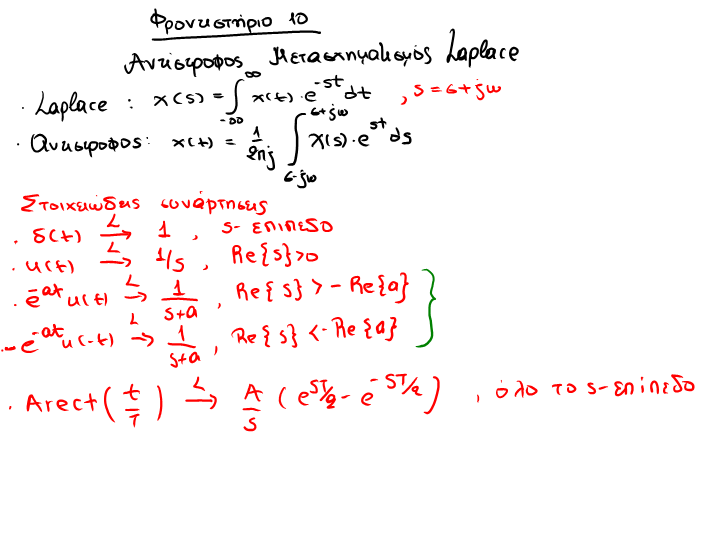 Φροντιστήριο 10
Αντίστροφος Μετασχηματισμός Laplace
. Laplace : X(s) = ∫_{-∞}^{∞} x(t) · e^{-st} dt , s = σ + jω
. Αντίστροφος: x(t) = 1/2πj ∫_{σ-jω}^{σ+jω} X(s) · e^{st} ds
Στοιχειώδεις συνάρτησεις
. δ(t) \xrightarrow{L} 1 , s- επίπεδο
. u(t) \xrightarrow{L} 1/s , Re{s}>0
. e^{-at} u(t) \xrightarrow{L} 1/(s+a) , Re{s} > - Re{a}
. -e^{-at} u(-t) \xrightarrow{L} 1/(s+a) , Re{s} < - Re{a}
. A rect(t/T) \xrightarrow{L} A/s (e^{sT/2} - e^{-sT/2}) , όλο το s-επίπεδο